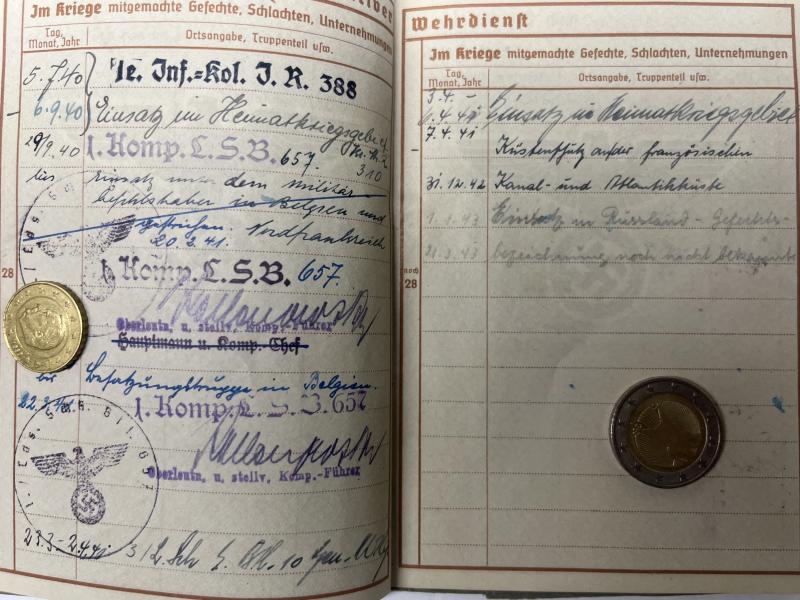 Im Kriege mitgemachte Gefechte, Schlachten, Unternehmungen
Tag, Monat, Jahr
Ortsangabe, Truppenteil usw.
5.7.40
le. Inf.=Kol. I. R. 388
6.9.40
Einsatz im Heimatkriegsgebiet
29/9.40
1. Komp. L.S.B. 657.
310
bis
Einsatz unter dem Militär-
befehlshaber in Belgien und
gestrichen. Nordfrankreich
20.3.41.
28
1. Komp. L.S.B. 657.
Oberleutn. u. stellv. Komp.-Führer
Hauptmann u. Komp.-Chef
Besatzungstruppe in Belgien.
22.3.41
1. Komp. L. S. B. 657
Oberleutn. u. stellv. Komp.-Führer
23.3.-2.4.41
Wehrdienst
Im Kriege mitgemachte Gefechte, Schlachten, Unternehmungen
Tag, Monat, Jahr
Ortsangabe, Truppenteil usw.
3.4.-
6.4.41
Einsatz im Heimatkriegsgebiet
7.4.41
Küstenschutz an der französischen
31.12.42
Kanal- und Atlantikküste
1.1.43
Einsatz in Russland - Gefechts-
noch 28
bezeichnung noch nicht bekannt